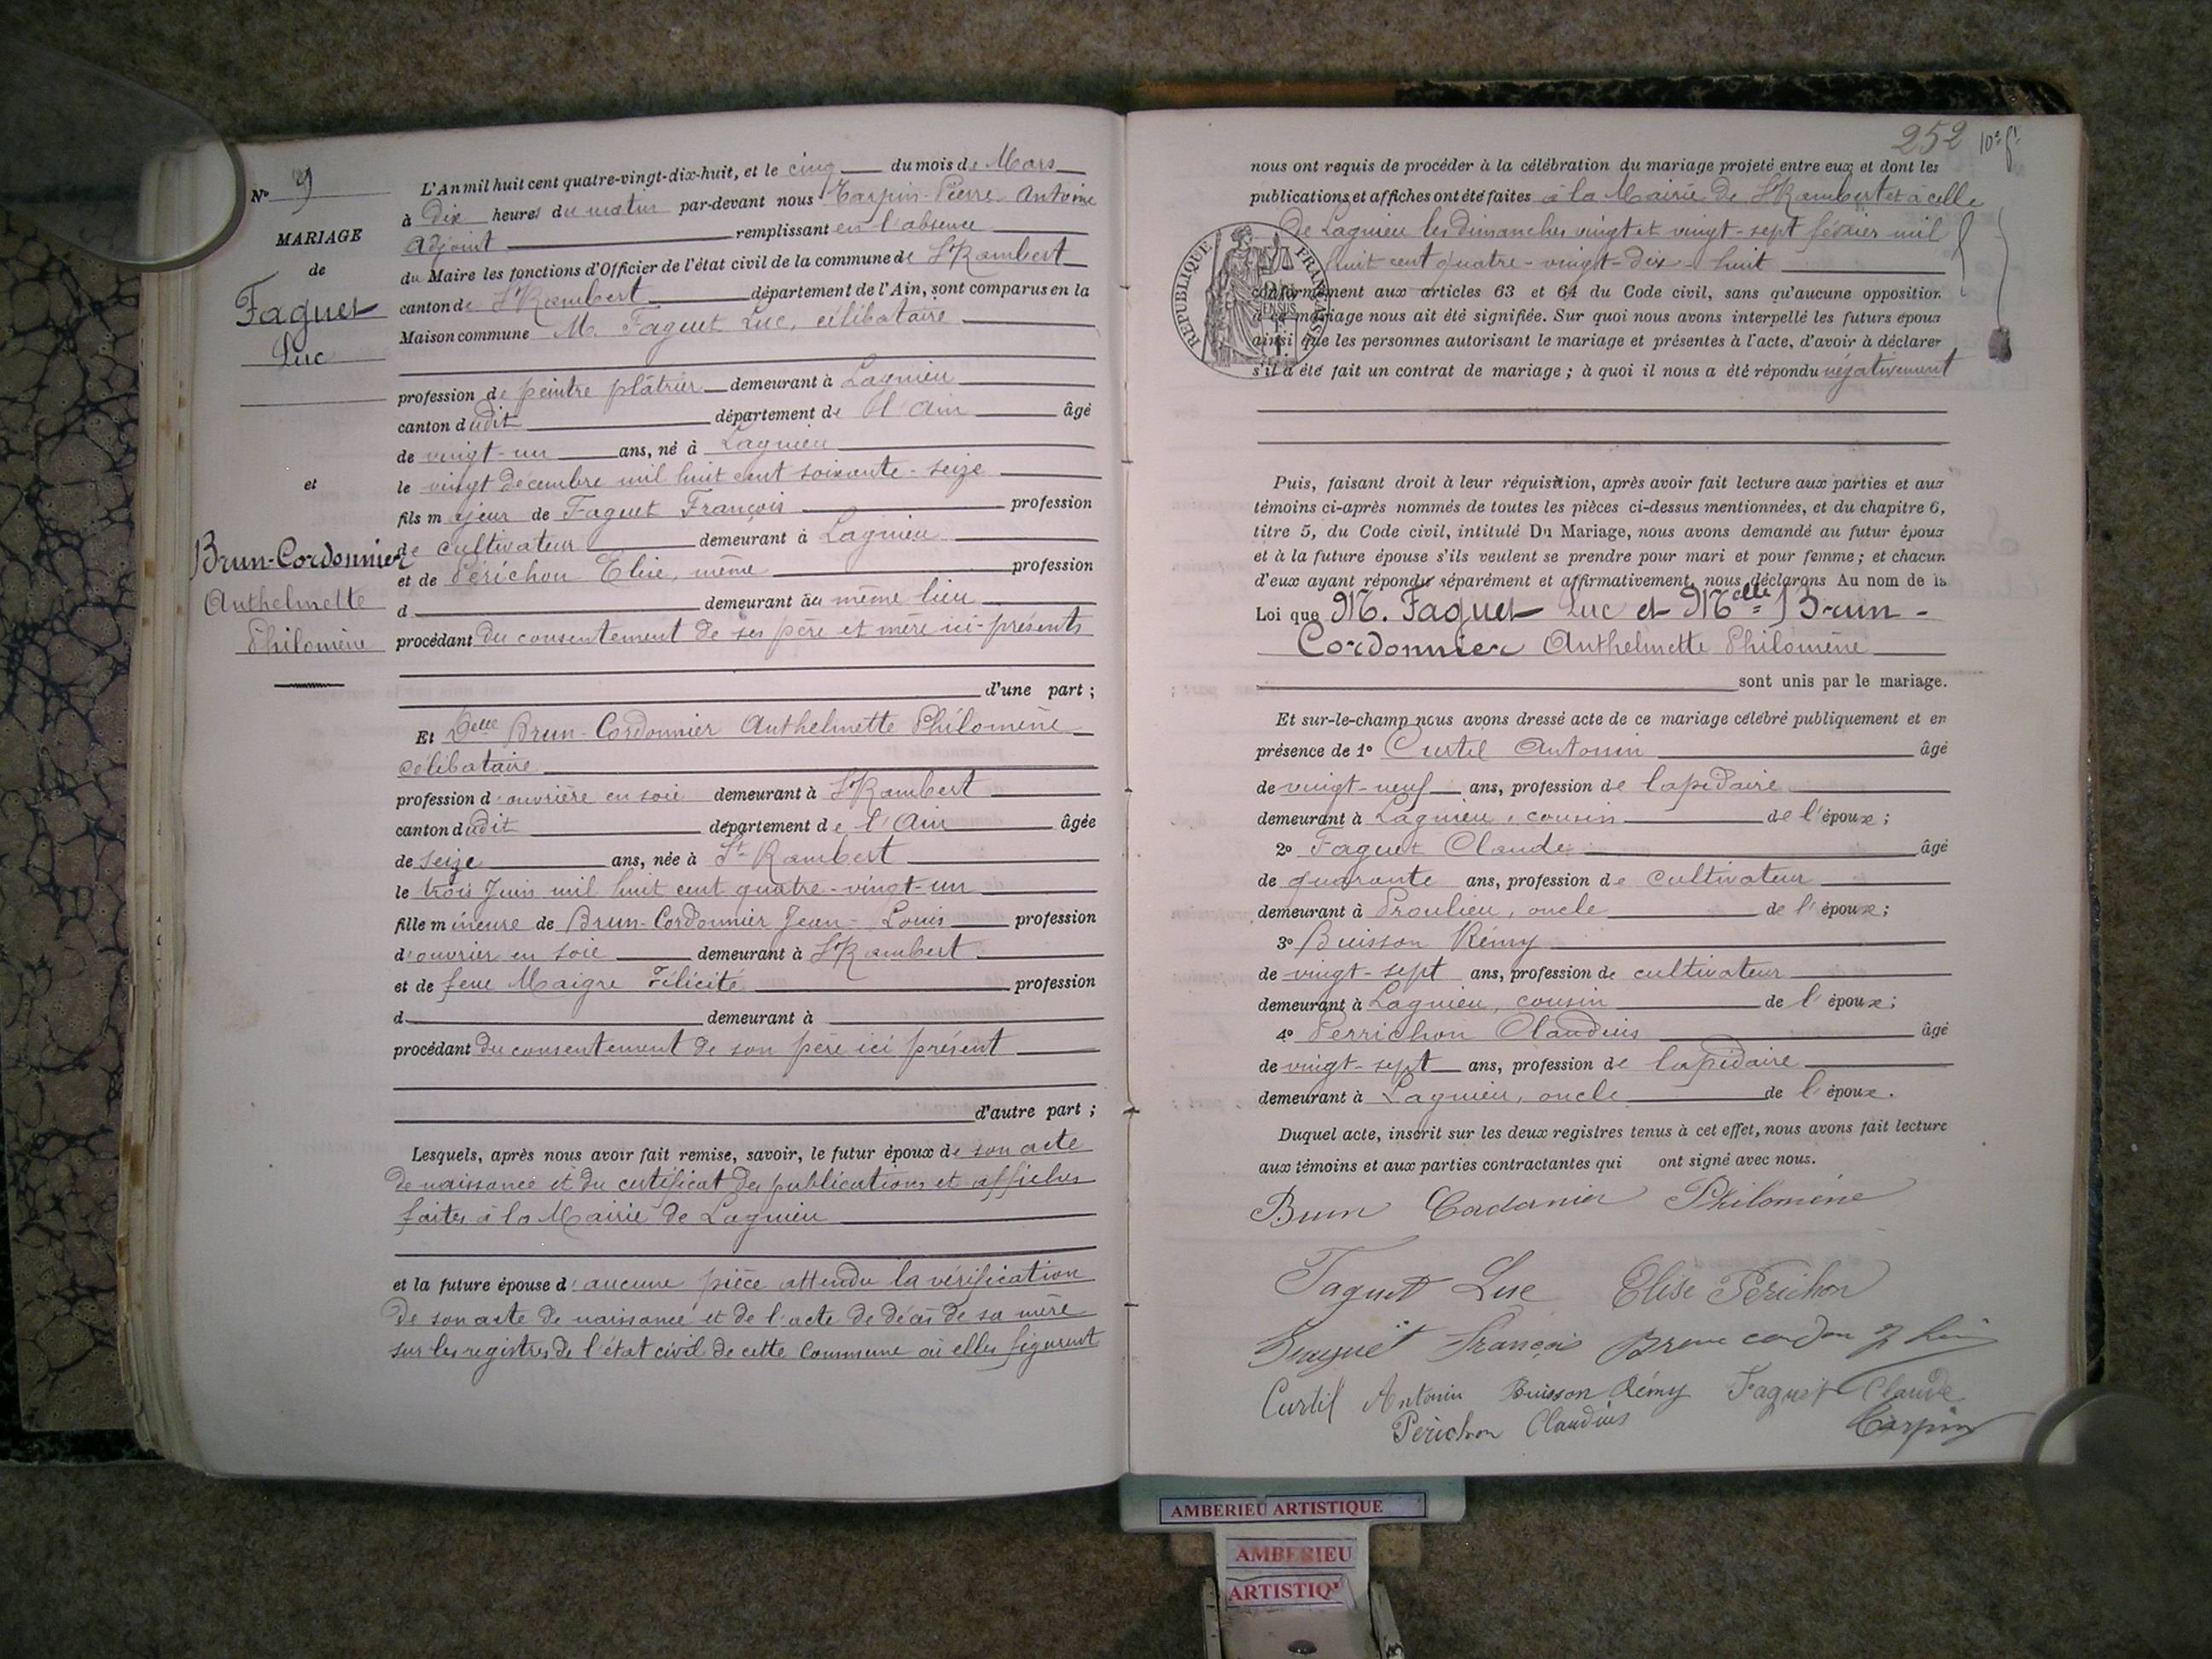 N° 9
MARIAGE
de
Faguet
Luc
et
Brun-Cordonnier
Anthelmette
Philomène
L'An mil huit cent quatre-vingt-dix-huit, et le cinq du mois de Mars
à dix heures du matin par-devant nous Tarpin Pierre Antoine
Adjoint remplissant en l'absence
du Maire les fonctions d'Officier de l'état civil de la commune de St Rambert
canton de St Rambert département de l'Ain, sont comparus en la
Maison commune M. Faguet Luc, célibataire
profession de peintre plâtrier demeurant à Lagnieu
canton dudit département de l'Ain âgé
de vingt-un ans, né à Lagnieu
le vingt décembre mil huit cent soixante-seize
fils majeur de Faguet François profession
de cultivateur demeurant à Lagnieu
et de Périchon Elise, même profession
d demeurant au même lieu
procédant du consentement de ses père et mère ici-présents
d'une part ;
Et Delle Brun-Cordonnier Anthelmette Philomène
célibataire
profession d'ouvrière en soie demeurant à St Rambert
canton dudit département de l'Ain âgée
de seize ans, née à St Rambert
le trois Juin mil huit cent quatre-vingt-un
fille mineure de Brun-Cordonnier Jean-Louis profession
d'ouvrier en soie demeurant à St Rambert
et de feue Maigre Félicité profession
d demeurant à
procédant du consentement de son père ici présent
d'autre part ;
Lesquels, après nous avoir fait remise, savoir, le futur époux de son acte
de naissance et du certificat des publications et affiches
faites à la Mairie de Lagnieu
et la future épouse d'aucune pièce attendu la vérification
de son acte de naissance et de l'acte de décès de sa mère
sur les registres de l'état civil de cette Commune où elles figurent
252
nous ont requis de procéder à la célébration du mariage projeté entre eux et dont les
publications et affiches ont été faites à la Mairie de St Rambert et à celle
de Lagnieu les dimanches vingt et vingt-sept février mil
huit cent quatre-vingt-dix-huit
RÉPUBLIQUE FRANÇAISE
conformément aux articles 63 et 64 du Code civil, sans qu'aucune opposition
à ce mariage nous ait été signifiée. Sur quoi nous avons interpellé les futurs époux
ainsi que les personnes autorisant le mariage et présentes à l'acte, d'avoir à déclarer
s'il a été fait un contrat de mariage ; à quoi il nous a été répondu négativement
Puis, faisant droit à leur réquisition, après avoir fait lecture aux parties et aux
témoins ci-après nommés de toutes les pièces ci-dessus mentionnées, et du chapitre 6,
titre 5, du Code civil, intitulé Du Mariage, nous avons demandé au futur époux
et à la future épouse s'ils veulent se prendre pour mari et pour femme ; et chacun
d'eux ayant répondu séparément et affirmativement, nous déclarons Au nom de la
Loi que M. Faguet Luc et Melle Brun-
Cordonnier Anthelmette Philomène
sont unis par le mariage.
Et sur-le-champ nous avons dressé acte de ce mariage célébré publiquement et en
présence de 1° Curtil Antonin âgé
de vingt-neuf ans, profession de lapidaire
demeurant à Lagnieu, cousin de l'époux ;
2° Faguet Claude âgé
de quarante ans, profession de cultivateur
demeurant à Proulieu, oncle de l'époux ;
3° Buisson Rémy
de vingt-sept ans, profession de cultivateur
demeurant à Lagnieu, cousin de l'époux ;
4° Perrichon Claudius âgé
de vingt-sept ans, profession de lapidaire
demeurant à Lagnieu, oncle de l'époux.
Duquel acte, inscrit sur les deux registres tenus à cet effet, nous avons fait lecture
aux témoins et aux parties contractantes qui ont signé avec nous.
Brun Cordonier Philomène
Faguet Luc Elise Périchon
François
Curtil Antonin Buisson Rémy Faguet Claude
Périchon Claudius Tarpin
AMBERIEU ARTISTIQUE
AMBERIEU
ARTISTIQ